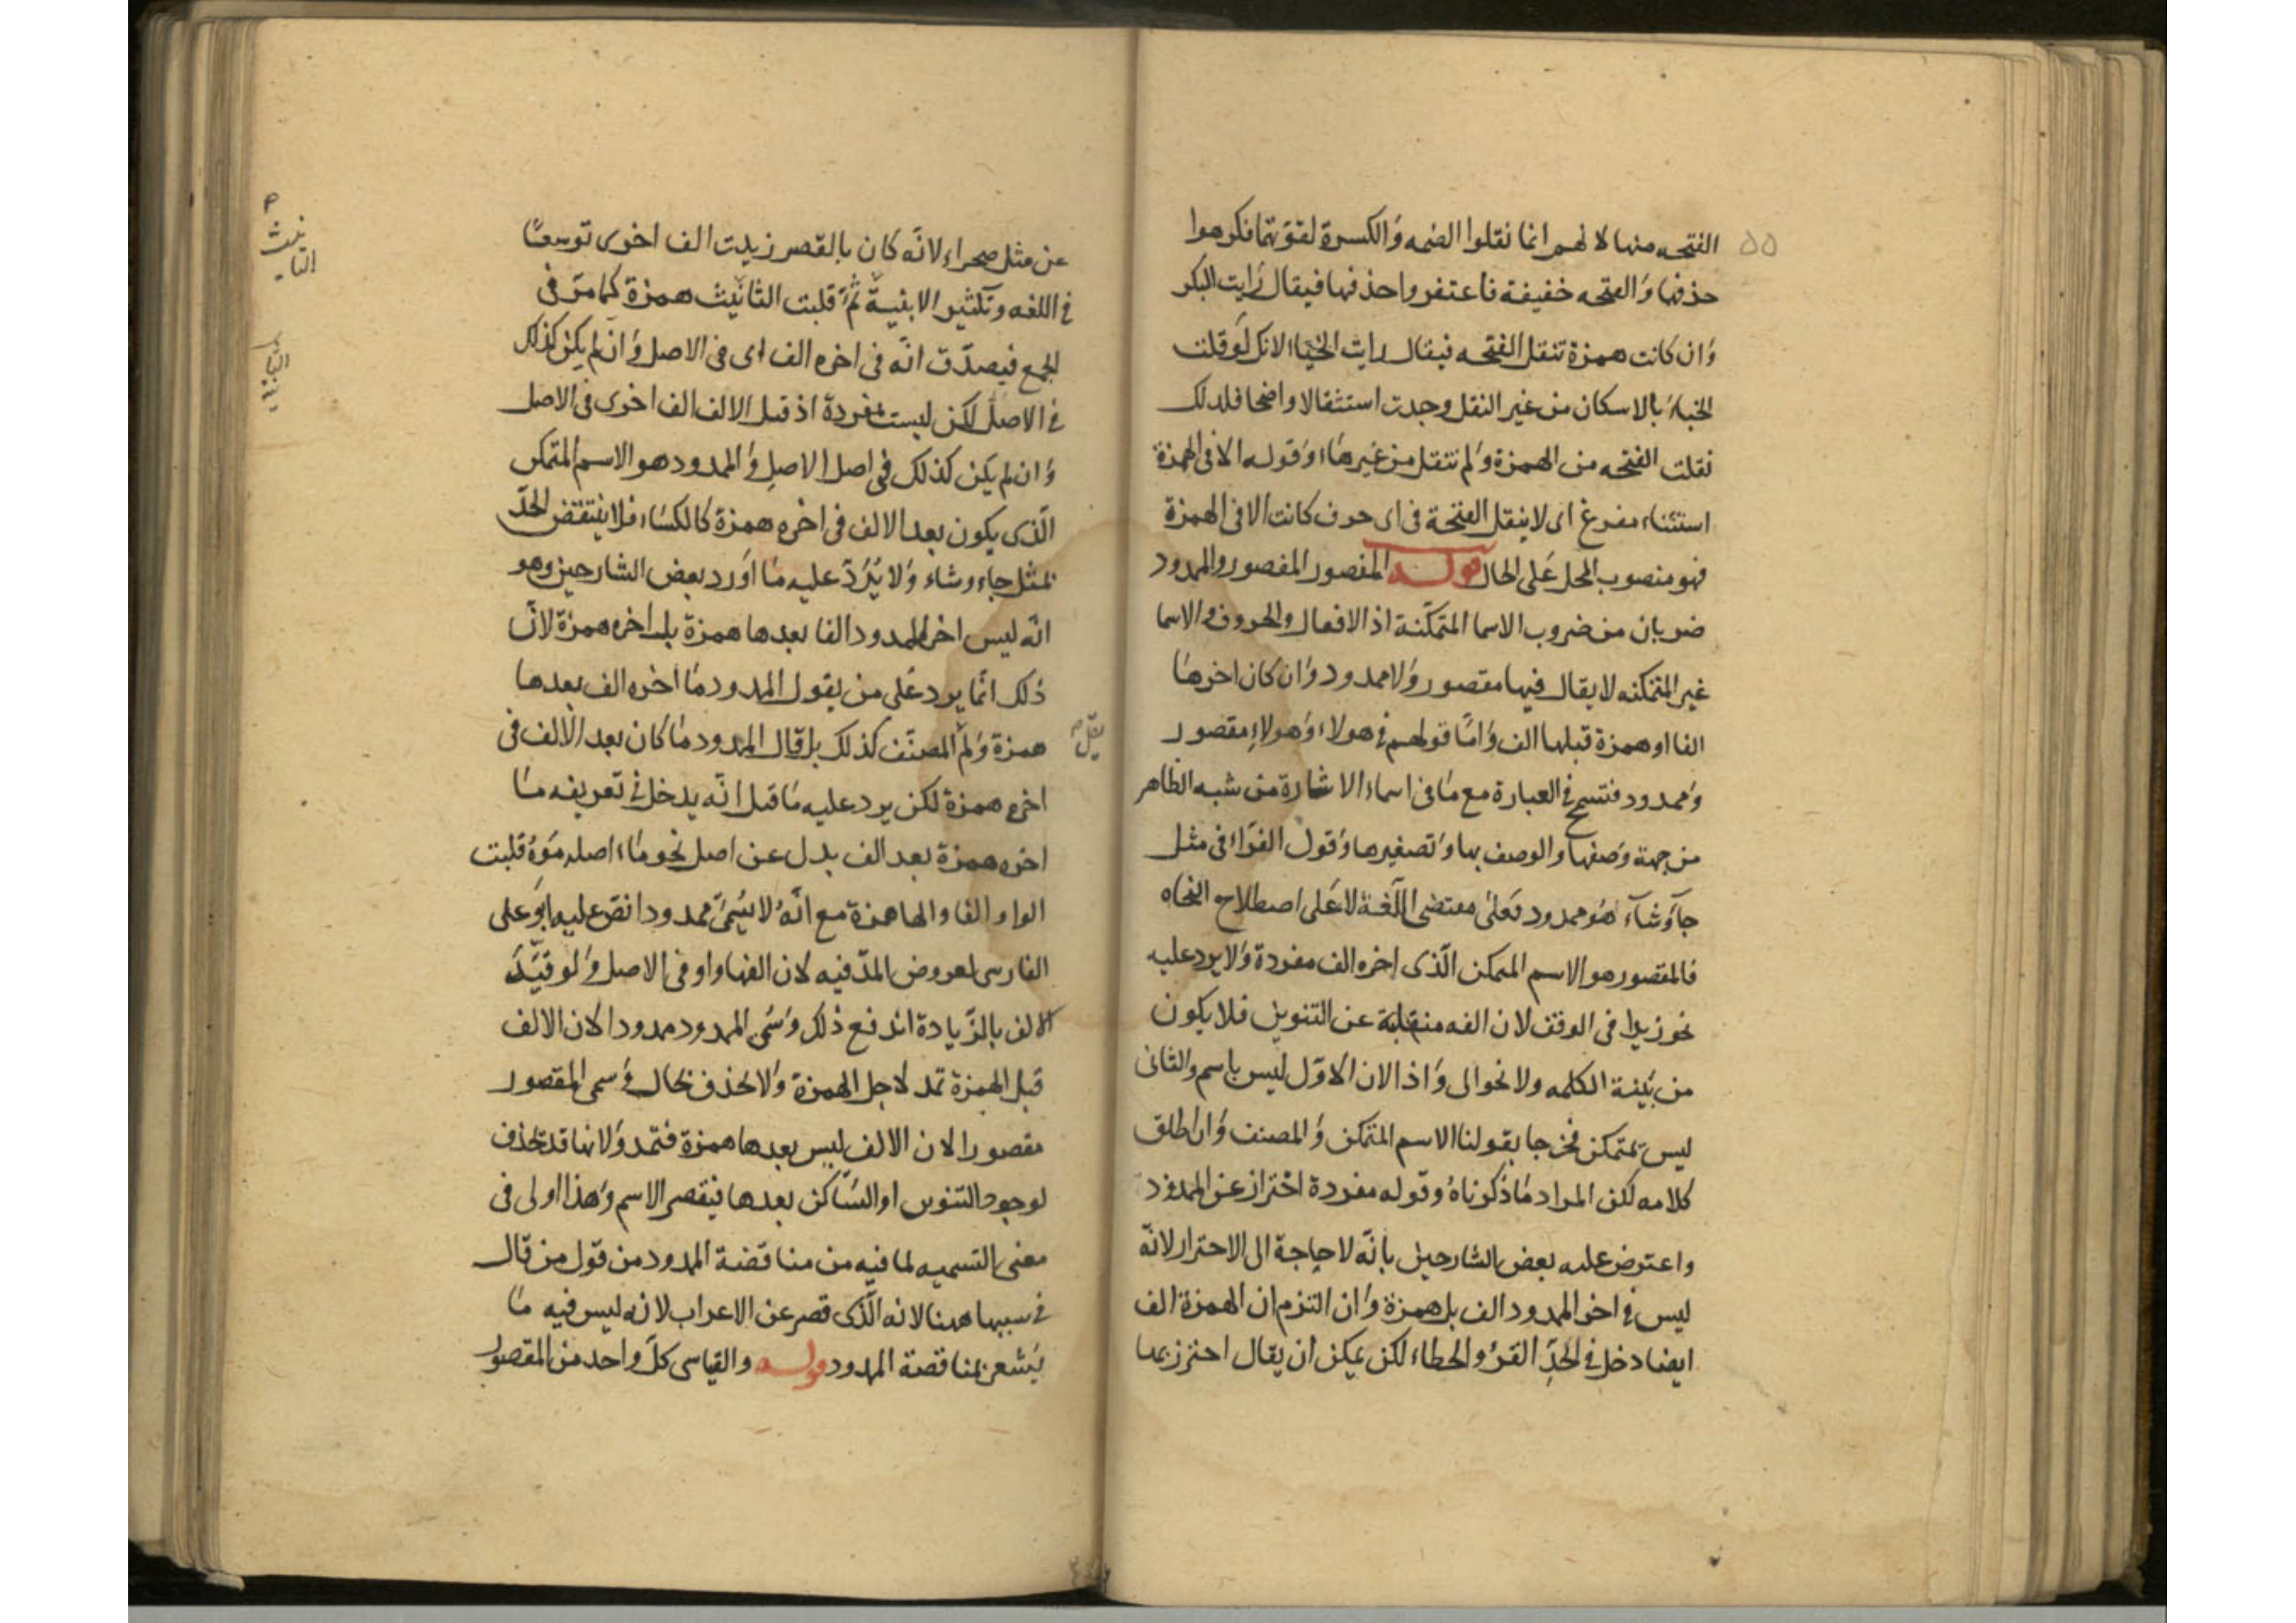 ٥٥
الفتحه منها لانهم انما نقلوا الضمه والكسرة لقوتهما فكرهوا
حذفها والفتحه خفيفة فاعتفروا حذفها فيقال رايت البكر
وان كانت همزة تنقل الفتحه فيقال رايت الخبا لانك لو قلت
الخبا بالاسكان من غير النقل وجدت استثقالا واضحا فلدلك
نقلت الفتحه من الهمزة ولم تنقل من غيرهاء وقوله الا فى الهمزة
استثناء مفرغ اى لا ينقل الفتحة فى اى حرف كانت الا فى الهمزة
فهو منصوب المحل على الحال قوله المقصور المقصور والممدود
ضربان من ضروب الاسما المتمكنة اذ الافعال والحروف والاسما
غير المتمكنه لا يقال فيها مقصور ولا ممدود وان كان اخرها
الفا او همزة قبلها الف واما قولهم فى هولاء وهولاء مقصور
وممدود فتسمح فى العبارة مع ما فى اسماء الاشارة من شبه الظاهر
من جهة وصفها والوصف بها وتصغيرها وقول الفراء فى مثل
جاء وشآء هو ممدود فعلى مقتضى اللغة لا على اصطلاح النحاه
فالمقصور هو الاسم المتمكن الذى اخره الف مفردة ولا يرد عليه
نحو زيدا فى الوقف لان الفه منقلبة عن التنوين فلا يكون
من بنية الكلمه ولا نحو الى واذا لان الاول ليس باسم والثانى
ليس بمتمكن فخرجا بقولنا الاسم المتمكن والمصنف وان اطلق
كلامه لكن المراد ما ذكرناه وقوله مفردة احتراز عن الممدود
واعترض عليه بعض الشارحين بانه لا حاجة الى الاحتراز لانه
ليس فى اخر الممدود الف بل همزة وان التزم ان الهمزة الف
ايضا دخل فى الحد القرؤ والخطاء لكن يمكن ان يقال احترز بها
عن مثل صحراء لانه كان بالقصر زيدت الف اخرى توسعا
فى اللغه وتكثير الابنية ثم قلبت الثانيث همزة كما مر فى
الجمع فيصدق انه فى اخره الف اى فى الاصل وان لم يكن كذلك
فى الاصل لكن ليست مفردة اذ قبل الالف الف اخرى فى الاصل
وان لم يكن كذلك فى اصل الاصل والممدود هو الاسم المتمكن
الذى يكون بعد الالف فى اخره همزة كالكساء فلا ينتقض الحد
بمثل جاء وشاء ولا يرد عليه ما اورد بعض الشارحين وهو
انه ليس اخر الممدود الفا بعدها همزة بل اخره همزة لان
ذلك انما يرد على من يقول الممدود ما اخره الف بعدها
همزة ولم المصنف كذلك بل قال الممدود ما كان بعد الالف فى
يقل
اخره همزة لكن يرد عليه ما قيل انه يدخل فى تعريفه ما
اخره همزة بعد الف بدل عن اصل نحو ماء اصله موه قلبت
الواو الفا والها همزة مع انه لا يسمى ممدودا نص عليه ابو على
الفارسى لعروض المد فيه لان الفها واو فى الاصل ولو قيد
الالف بالزيادة اندفع ذلك وسمى الممدود ممدودا لان الالف
قبل الهمزة تمد لاجل الهمزة ولا تحذف بحال وسمى المقصور
مقصورا لان الالف ليس بعدها همزة فتمد ولانها قد تحذف
لوجود التنوين او الساكن بعدها فيقصر الاسم وهذا اولى فى
معنى التسميه لما فيه من مناقضة الممدود من قول من قال
فى سببها هنا لانه الذى قصر عن الاعراب لانه ليس فيه ما
يشعر بمناقضة الممدود قوله والقياسى كل واحد من المقصور